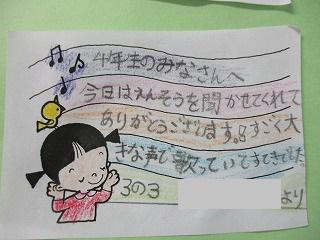 4年生のみなさんへ
今日はえんそうを聞かせてくれて
ありがとうございます。すごく大
きな声で歌っていてすてきでした。
3の3
より